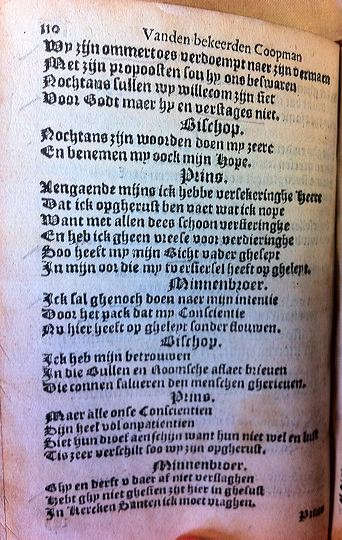 110
Vanden bekeerden Coopman
Wy zijn ommertoes verdoempt naer zijn vermaen
Met zijn propoosten sou hy ons beswaren
Nochtans sullen wy willecom zijn siet
Voor Godt maer hy en verslages niet.
Bischop.
Nochtans zijn woorden doen my zeere
En benemen my oock mijn Hope.
Prins.
Aengaende mijns ick hebbe versekeringhe Heere
Dat ick opgherust ben vaet wat ick nope
Want met allen dees schoon versieringhe
En heb ick gheen vreese voor verdieringhe
Soo heeft my mijn Bicht vader ghesept
In mijn oor die my tversiersel heeft op ghelept.
Minnenbroer.
Ick sal ghenoch doen naer mijn intentie
Door het pack dat my Conscientie
Nu hier heeft op ghelept sonder flouwen.
Bischop.
Ick heb mijn betrouwen
In die Bullen en Roomsche aflaet brieven
Die connen salueren den menschen gherieven.
Prins.
Maer alle onse Conscientien
Zijn heel vol onpatientien
Siet hun droef aenschijn want hun niet wel en lust
Tis zeer verschilt soo wy zijn opgherust.
Minnenbroer.
Ghy en derft u daer af niet verslaghen
Hebt ghy niet ghesien zijt hier in ghesust
In Kercken Santen ick moet vraghen.
Prins